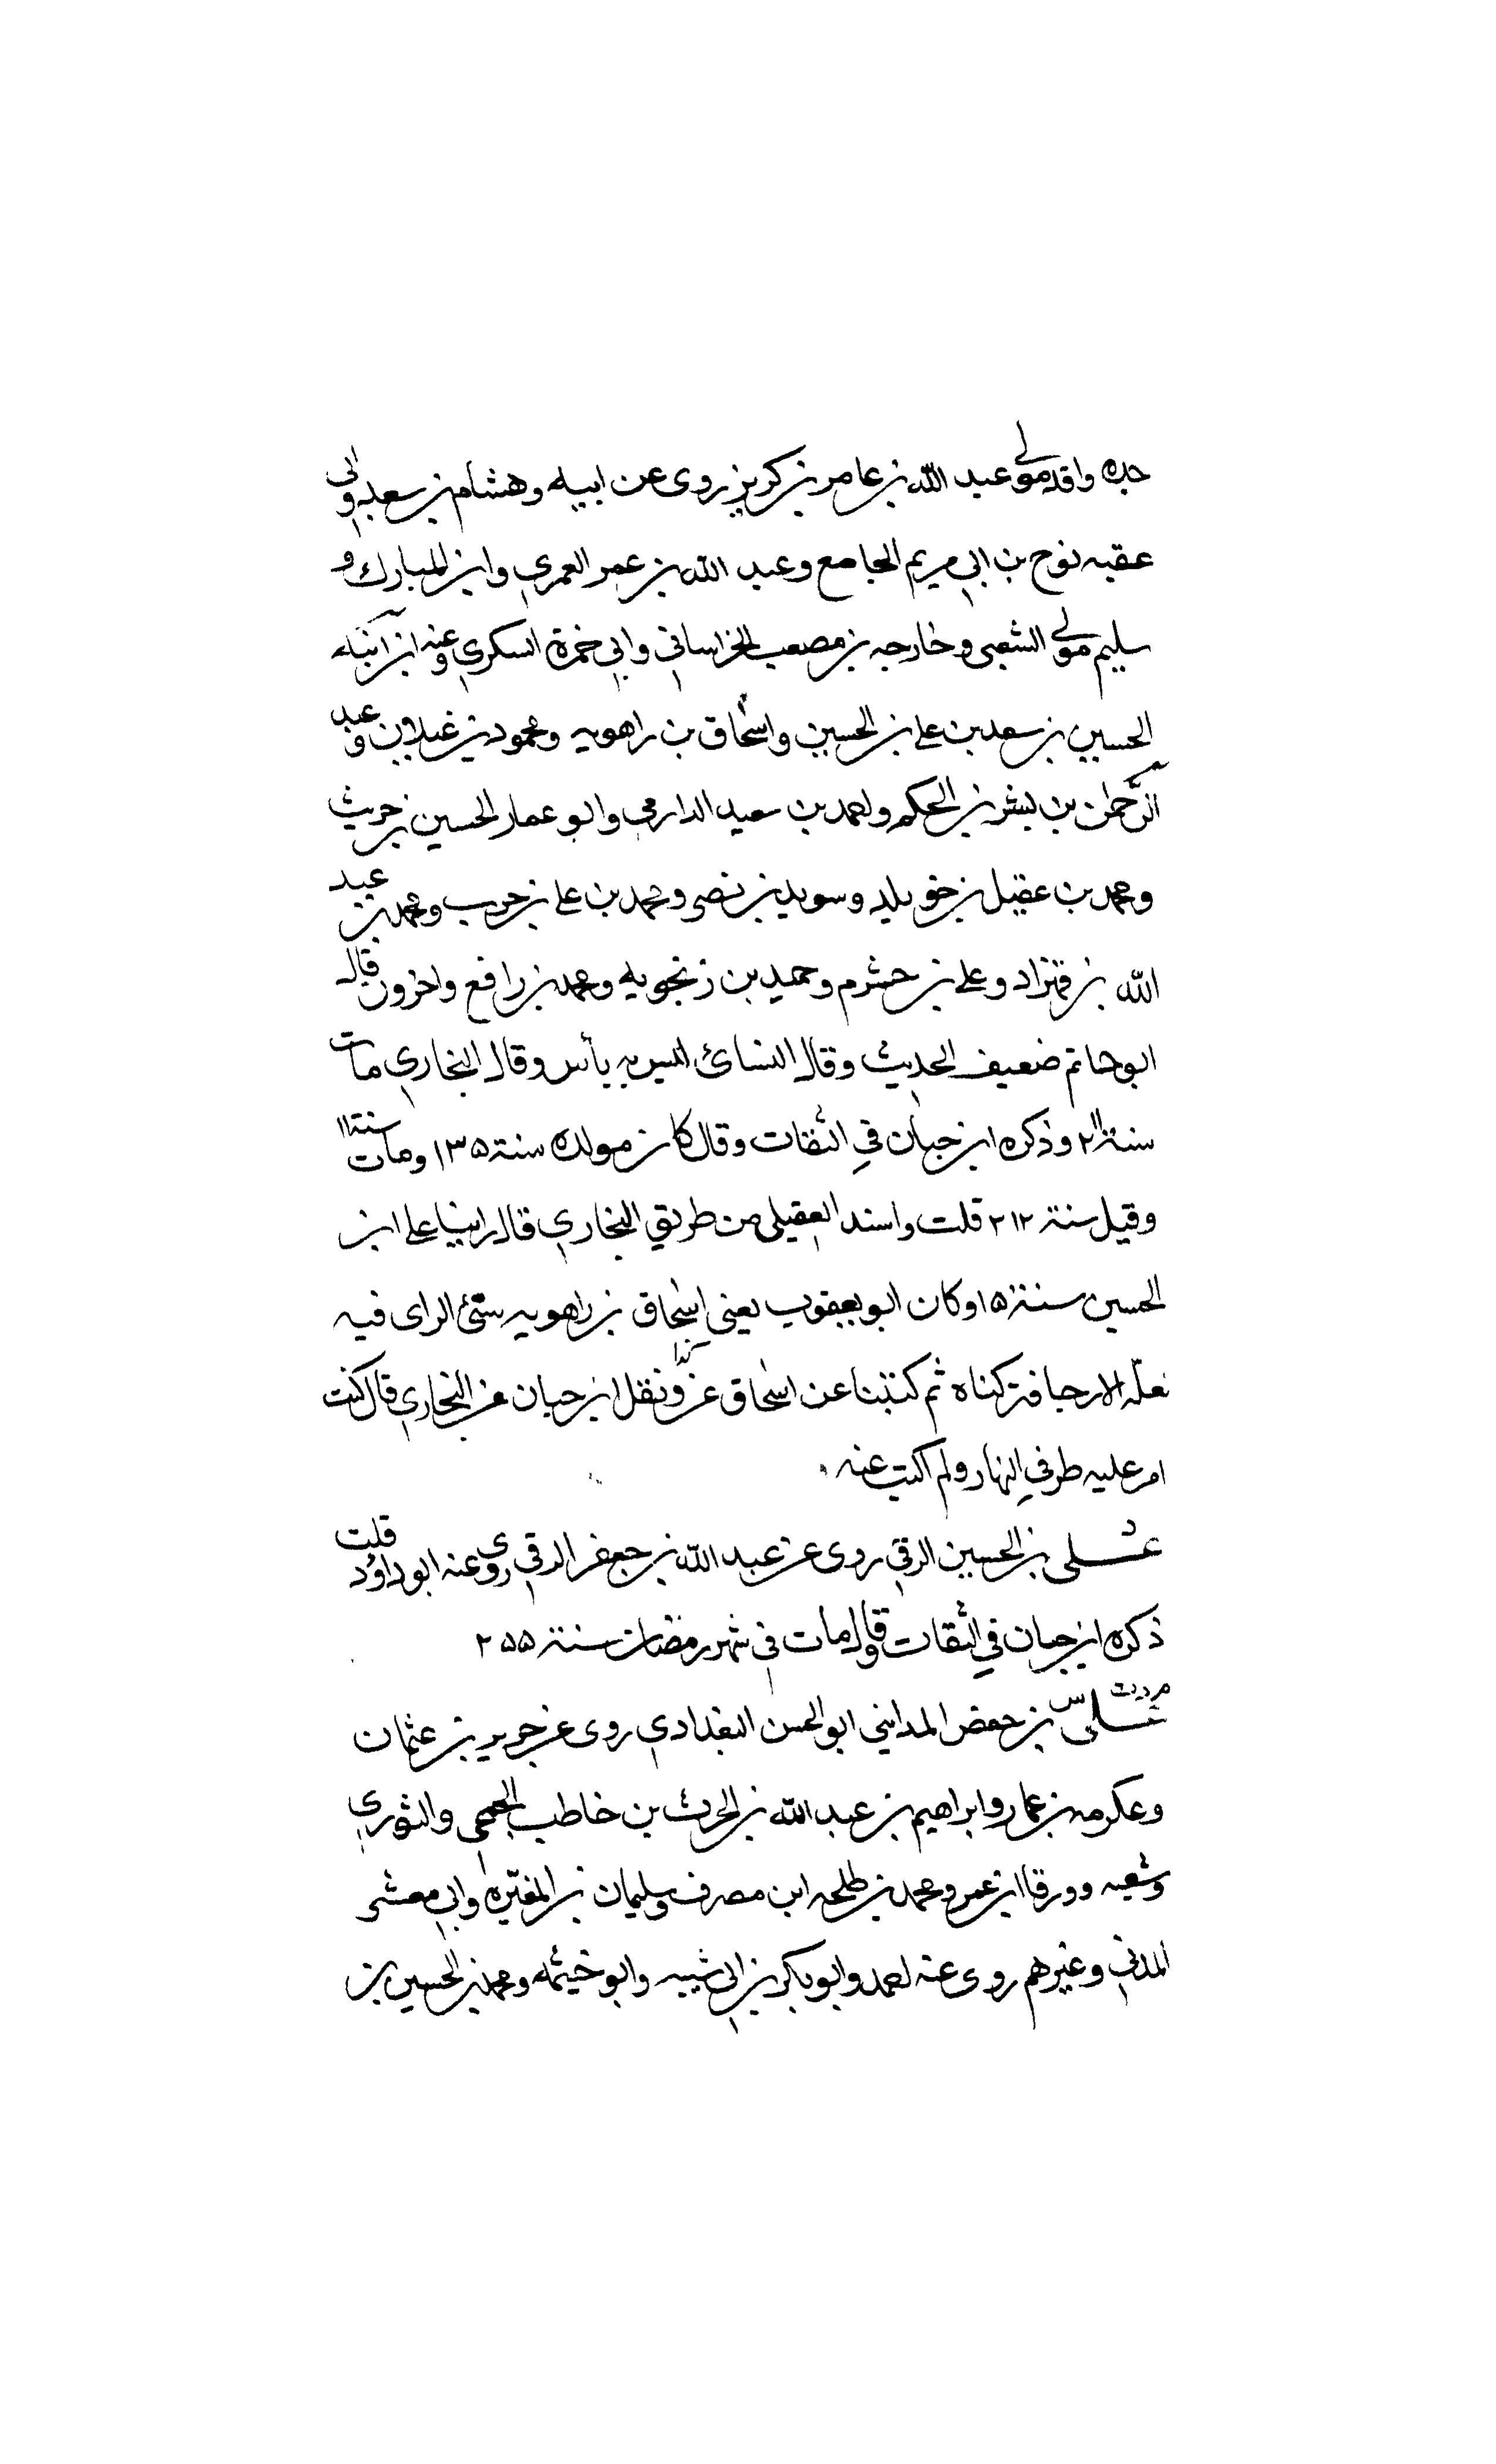 جده واقد مولى عبد الله بن عامر بن كريز روى عن ابيه وهشام بن سعد وابى
عقبه نوح بن ابي مريم الجامع وعبد الله بن عمر العمري وابن المبارك و
سليم مولى الشعبى وخارجه بن مصعب الخراساني وابي حمزة السكري وعنه ابن ابنه
الحسين بن سعد بن على بن الحسين واسحاق بن راهويه ومحمود بن غيلان وعبد
الرحمن بن بشر بن الحكم واحمد بن سعيد الدارمي وابو عمار الحسين بن حريث
ومحمد بن عقيل بن خويلد وسويد بن نصر ومحمد بن على بن حرب ومحمد بن عبد
الله بن قهزاد وعلى بن خشرم وحميد بن زنجويه ومحمد بن رافع واخرون قال
ابو حاتم ضعيف الحديث وقال النسائ ليس به بأس وقال البخاري مات
سنة ٢١١ وذكره ابن حبان في الثقات وقال كان مولده سنة ١٣٥ ومات سنة ١١
وقيل سنة ٢١٢ قلت واسند العقيلى من طريق البخاري قال راينا على ابن
الحسين سنة ١٥ وكان ابو يعقوب يعنى اسحاق بن راهويه سئ الراى فيه
لعلة الارجا فتركناه ثم كتبنا عن اسحاق عن ونقل ابن حبان عن البخاري قال كنت
امر عليه طرفي النهار ولم اكتب عنه
د
على بن الحسين الرقي روى عن عبد الله بن جعفر الرقي روى عنه ابو داؤد قلت
ذكره ابن حبان في الثقات وقال مات في شهر رمضان سنة ٢٥٥
م د ت س
على بن حفص المدايني ابو الحسن البغدادي روى عن حريز بن عثمان
وعكرمه بن عمار وابراهيم بن عبد الله بن الحرث بن خاطب الجمحى والثوري
وشعبه وورقا ابن عمر ومحمد بن طلحه ابن مصرف وسليمان بن المغيره وابي معشر
المدني وغيرهم روى عنه احمد وابو بكر بن ابى شيبه وابو خيثمه ومحمد بن الحسين بن